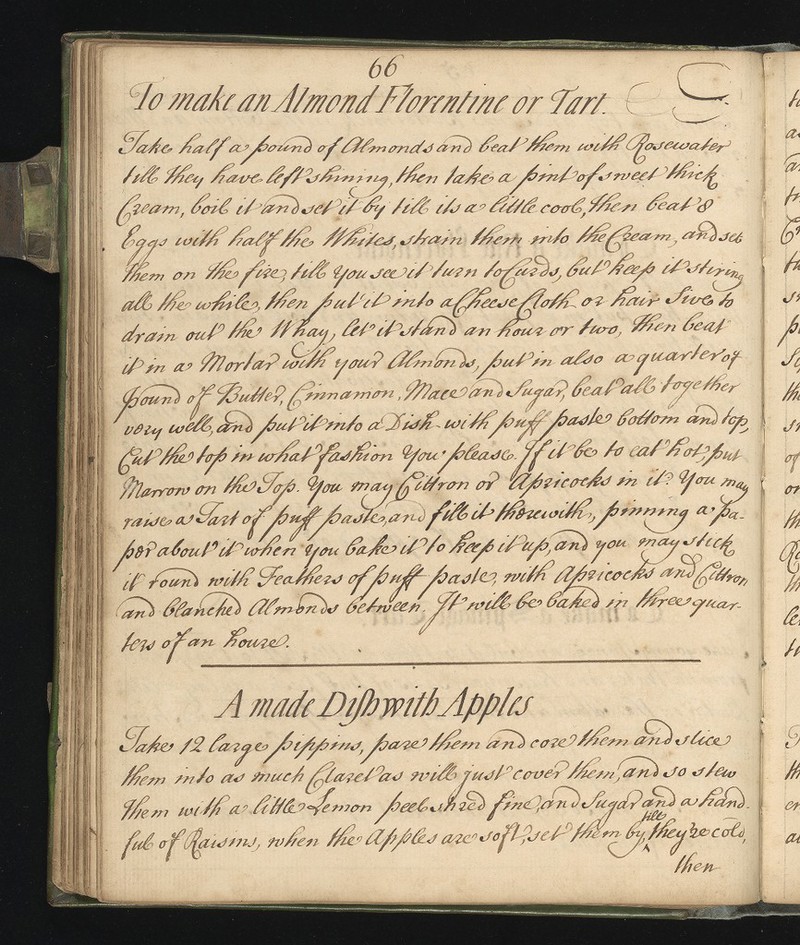 66
To make an Almond Florentine or Tart.
Take half a pound of Almonds and beat them with Rosewater
till they have left shining, then take a pint of sweet thick
Cream, boil it and set it by till its a little cool, then beat 8
Eggs with half the Whites, strain them into the Cream, and set
them on the fire, till you see it turn to Curds, but keep it stiring
all the while, then put it into a Cheese Cloth or hair Sive to
drain out the Whay, let it stand an hour or two, then beat
it in a Mortar with your Almonds, put in also a quarter of
pound of Butter, Cinnamon, Mace and Sugar, beat all together
very well, and put it into a Dish with puff paste bottom and top,
Cut the top in what fashion you please. If it be to eat hot, put
Marrow on the Top. You may Cittron or Apricocks in it. You may
raise a Tart of puff paste, and fill it therewith, pinning a pa-
per about it when you bake it to keep it up, and you may stick
it round with Feathers of puff paste, with Apricocks and Cittron
and blanched Almonds between. It will be baked in three quar-
ters of an houre.
A made Dish with Apples
Take 12 large pippins, pare them and core them and slice
them into as much Claret as will just cover them, and so stew
them with a little Lemon peel shred fine, and Sugar and a hand-
ful of Raisins, when the Apples are soft, set them by till they're cold,
then